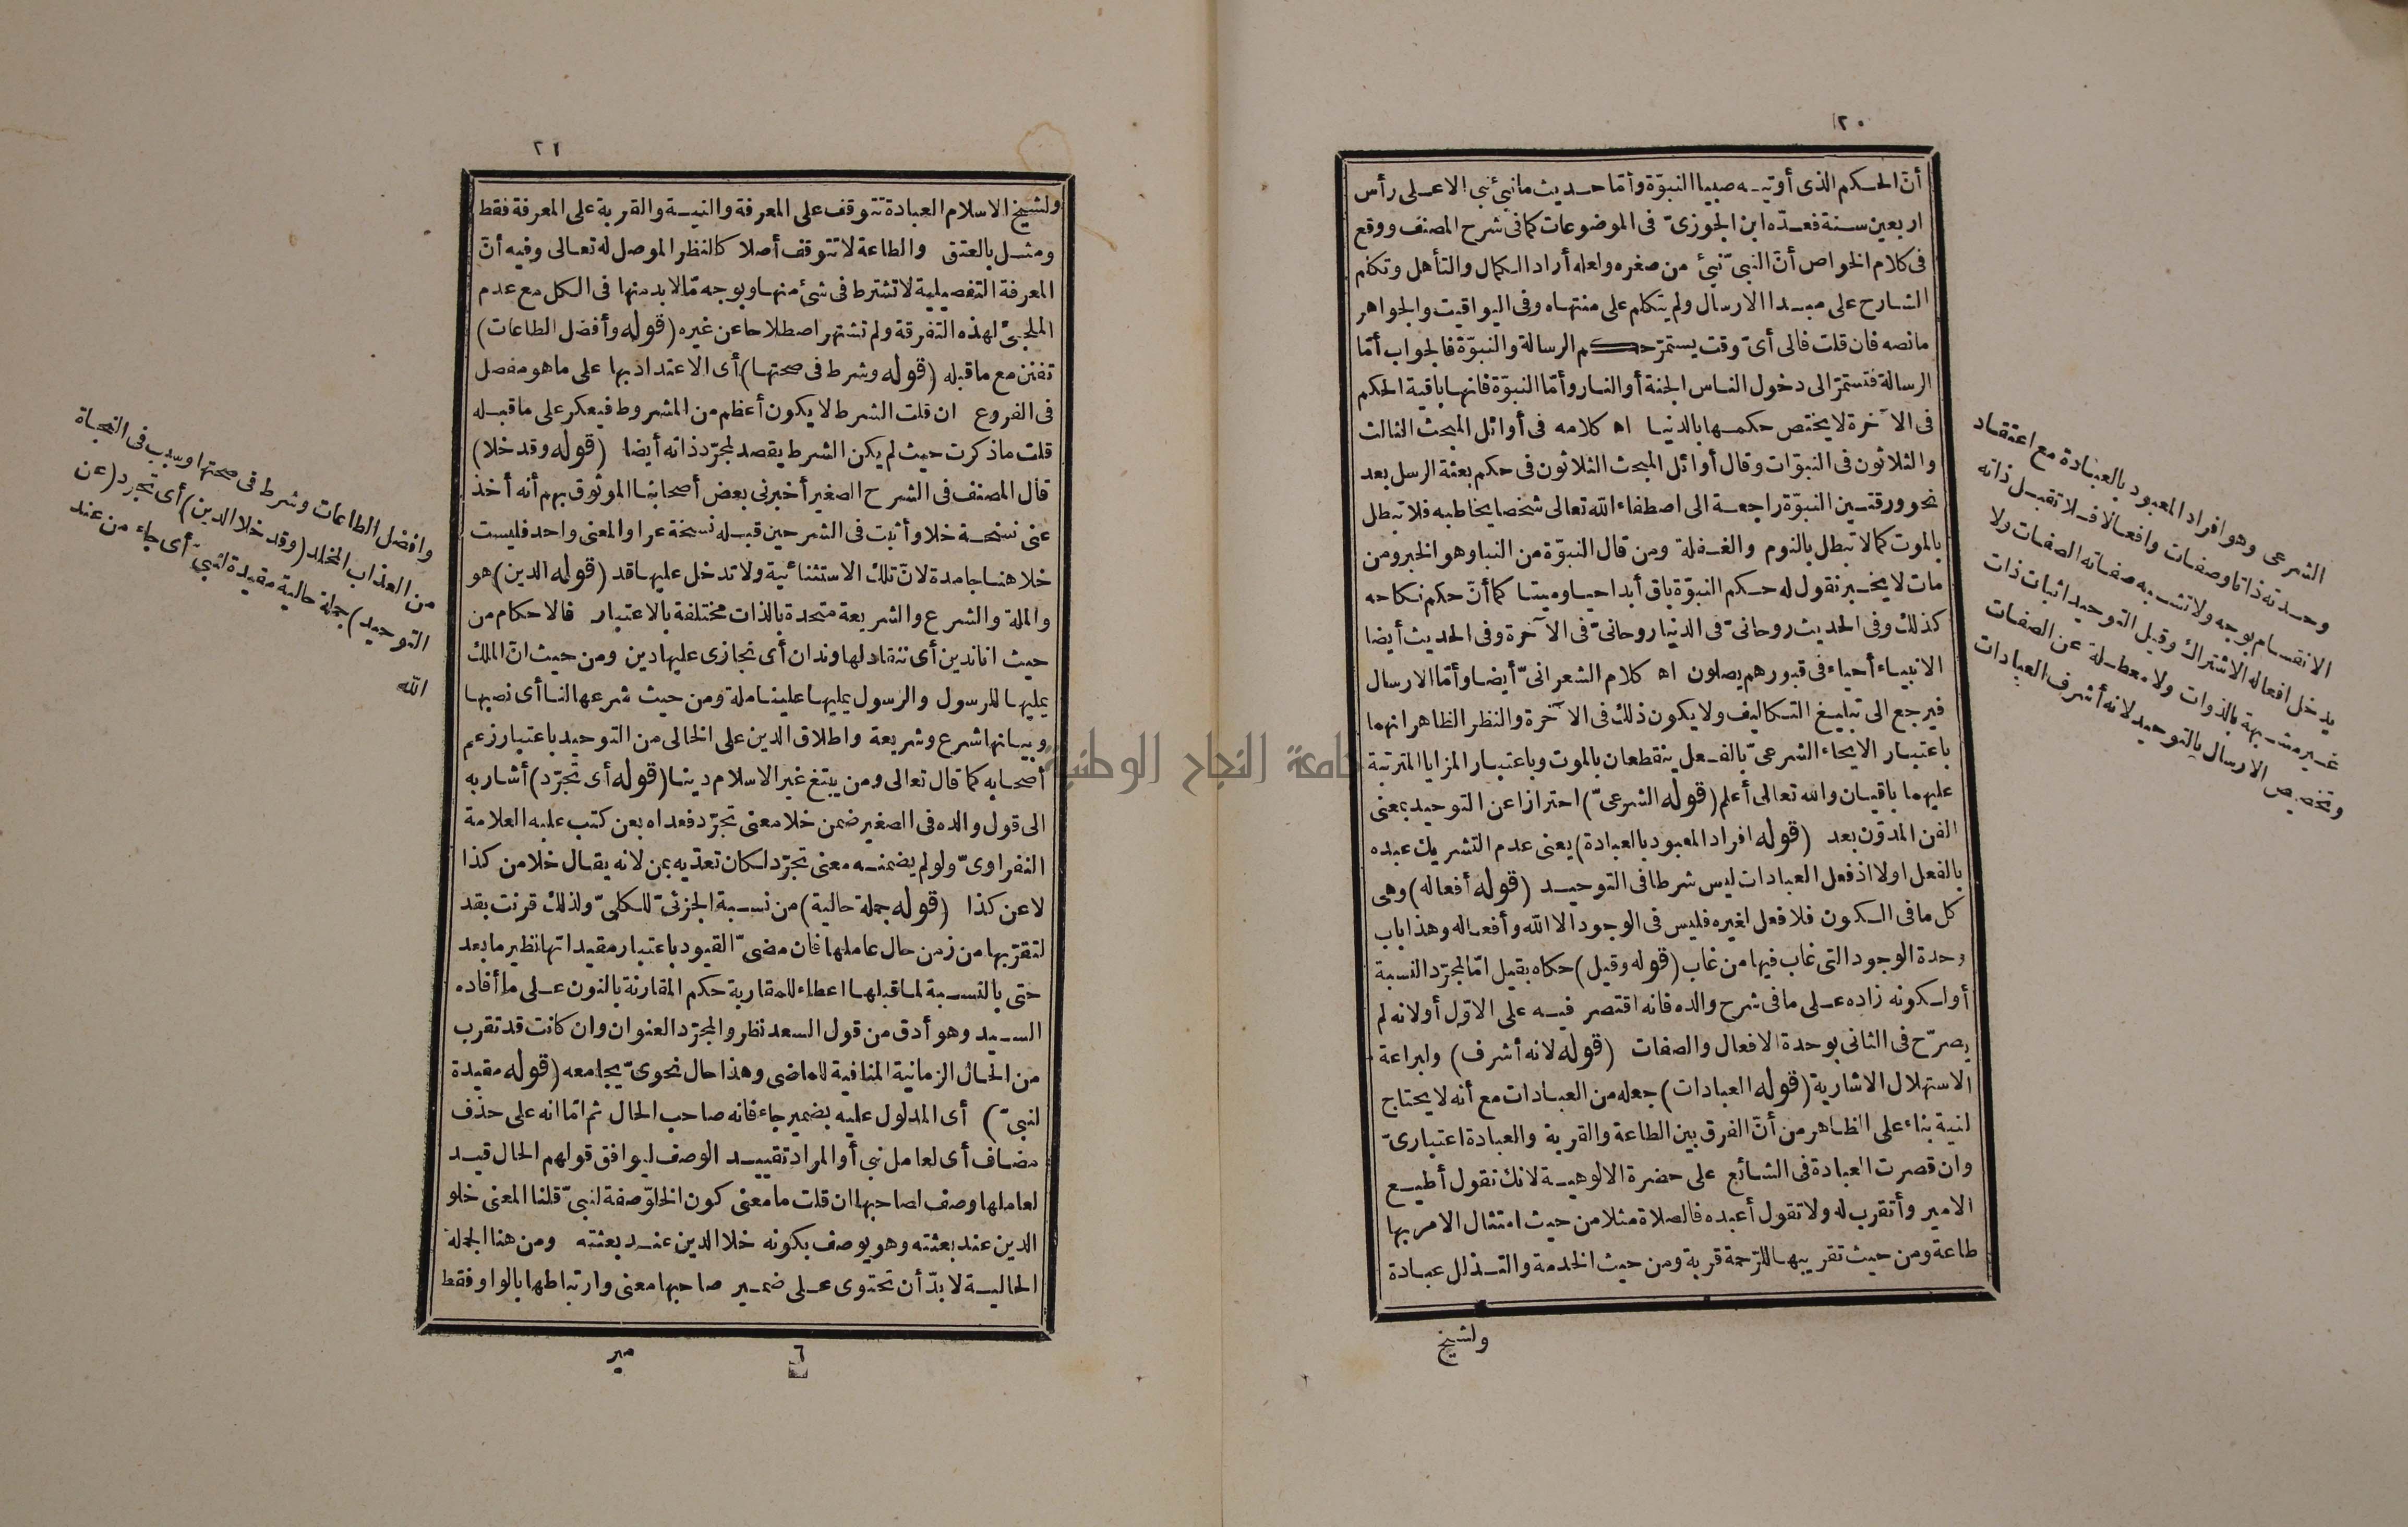 ٢٠
أنّ الحكم الذى أوتيه صبيا النبوّة وأمّا حديث ما نبئ نبى الا على رأس
اربعين سنة فعدّه ابن الجوزىّ فى الموضوعات كما فى شرح المصنف ووقع
فى كلام الخواص أنّ النبىّ نبئ من صغره ولعله أراد الكمال والتأهل وتكلم
الشارح على مبدا الارسال ولم يتكلم على منتهاه وفى اليواقيت والجواهر
مانصه فان قلت فالى أىّ وقت يستمرّ حكم الرسالة والنبوّة فالجواب أمّا
الرسالة فتستمرّ الى دخول الناس الجنة أو النار وأمّا النبوّة فانها باقية الحكم
فى الآخرة لا يختص حكمها بالدنيا اه كلامه فى أوائل المبحث الثالث
والثلاثون فى النبوّات وقال أوائل المبحث الثلاثون فى حكم بعثة الرسل بعد
نحو ورقتين النبوّة راجعة الى اصطفاء الله تعالى شخصا يخاطبه فلا تبطل
بالموت كما لا تبطل بالنوم والغفلة ومن قال النبوّة من النبا وهو الخبر ومن
مات لا يخبر نقول له حكم النبوّة باق أبدا حيا وميتا كما أنّ حكم نكاحه
كذلك وفى الحديث روحانىّ فى الدنيا روحانىّ فى الآخرة وفى الحديث أيضا
الانبياء أحياء فى قبورهم يصلون اه كلام الشعرانىّ أيضا وأمّا الارسال
فيرجع الى تبليغ التكاليف ولا يكون ذلك فى الآخرة والنظر الظاهر انهما
باعتبار الايحاء الشرعىّ بالفعل ينقطعان بالموت وباعتبار المزايا المترتبة
عليهما باقيان والله تعالى أعلم (قوله الشرعىّ) احترازا عن التوحيد بمعنى
الفن المدوّن بعد (قوله افراد المعبود بالعبادة) يعنى عدم التشريك عبده
بالفعل اولا اذ فعل العبادات ليس شرطا فى التوحيد (قوله أفعاله) وهى
كل ما فى الكون فلا فعل لغيره فليس فى الوجود الا الله وأفعاله وهذا باب
وحدة الوجود التى غاب فيها من غاب (قوله وقيل) حكاه بقيل امّا لمجرّد النسبة
أو لكونه زاده على ما فى شرح والده فانه اقتصر فيه على الاوّل أو لانه لم
يصرّح فى الثانى بوحدة الافعال والصفات (قوله لانه أشرف) ولبراعة
الاستهلال الاشارية (قوله العبادات) جعله من العبادات مع أنه لا يحتاج
لنية بناء على الظاهر من أنّ الفرق بين الطاعة والقربة والعبادة اعتبارىّ
وان قصرت العبادة فى الشائع على حضرة الالوهية لانك تقول أطيع
الامير وأتقرب له ولا تقول أعبده فالصلاة مثلا من حيث امتثال الامر بها
طاعة ومن حيث تقريبها للرّحمة قربة ومن حيث الخدمة والتذلل عبادة
ولشيخ
الشرعى وهو افراد المعبود بالعبادة مع اعتقاد
وحدته ذاتا وصفات وافعالا فلا تقبل ذاته
الانقسام بوجه ولا تشبه صفاته الصفات ولا
يدخل افعاله الاشتراك وقيل التوحيد اثبات ذات
غير مشبهة بالذوات ولا معطلة عن الصفات
وتخصيص الارسال بالتوحيد لانه أشرف العبادات
٢١
ولشيخ الاسلام العبادة تتوقف على المعرفة والنية والقربة على المعرفة فقط
ومثل بالعتق والطاعة لا تتوقف أصلا كالنظر الموصل له تعالى وفيه أنّ
المعرفة التفصيلية لا تشترط فى شئ منها وبوجه مّا لا بد منها فى الكل مع عدم
الملجئ لهذه التفرقة ولم تشتهر اصطلاحا عن غيره (قوله وأفضل الطاعات)
تفنن مع ما قبله (قوله وشرط فى صحتها) أى الاعتداد بها على ما هو مفصل
فى الفروع ان قلت الشرط لا يكون أعظم من المشروط فيعكر على ما قبله
قلت ما ذكرت حيث لم يكن الشرط يقصد لمجرّد ذاته أيضا (قوله وقد خلا)
قال المصنف فى الشرح الصغير أخبرنى بعض أصحابنا الموثوق بهم أنه أخذ
عنى نسخة خلا وأثبت فى الشرحين قبله نسخة عرا والمعنى واحد فليست
خلا هنا جامدة لانّ تلك الاستثنائية ولا تدخل عليها قد (قوله الدين) هو
والملة والشرع والشريعة متحدة بالذات مختلفة بالاعتبار فالاحكام من
حيث انا ندين أى ننقاد لها وندان أى نجازى عليها دين ومن حيث انّ الملك
يمليها للرسول والرسول يمليها علينا ملة ومن حيث شرعها لنا أى نصبها
وبيانها شرع وشريعة واطلاق الدين على الخالى من التوحيد باعتبار زعم
أصحابه كما قال تعالى ومن يبتغ غير الاسلام دينا (قوله أى تجرّد) أشار به
الى قول والده فى الصغير ضمن خلا معنى تجرّد فعداه بعن كتب عليه العلامة
النفراوىّ ولو لم يضمنه معنى تجرّد لكان تعدّيه بمن لانه يقال خلا من كذا
لا عن كذا (قوله جملة حالية) من نسبة الجزئىّ للكلىّ ولذلك قرنت بقد
لتقرّبها من زمن حال عاملها فان مضىّ القيود باعتبار مقيداتها نظير ما بعد
حتى بالنسبة لما قبلها اعطاء للمقاربة حكم المقارنة بالنون على ما أفاده
السيد وهو أدق من قول السعد نظر والمجرّد العنوان وان كانت قد تقرب
من الحال الزمانية المنافية للماضى وهذا حال نحوىّ يجامعه (قوله مقيدة
لنبىّ) أى المدلول عليه بضمير جاء فانه صاحب الحال ثم امّا انه على حذف
مضاف أى لعامل نبى أو المراد تقييد الوصف ليوافق قولهم الحال قيد
لعاملها وصف لصاحبها ان قلت ما معنى كون الخلوّ صفة لنبىّ قلنا المعنى خلو
الدين عند بعثته وهو يوصف بكونه خلا الدين عند بعثته ومن هنا الجملة
الحالية لا بدّ أن تحتوى على ضمير صاحبها معنى وارتباطها بالواو فقط
٦ مير
وافضل الطاعات وشرط فى صحتها وسبب فى النجاة
من العذاب المخلد (وقد خلا الدين) أى تجرد (عن
التوحيد) جملة حالية مقيدة لنبىّ أى جاء من عند
الله
جامعة النجاح الوطنية